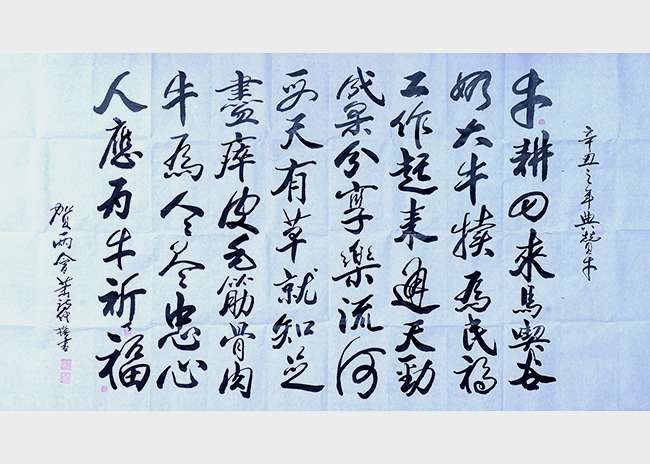 辛丑之年典贊牛
牛耕田來馬喫谷
奶大牛犢為民福
工作起来通天勁
成果分享樂流河
天有草就知足
盡瘁皮毛筋骨肉
牛為人尽忠心
人應为牛祈福
賀丙會 撰書